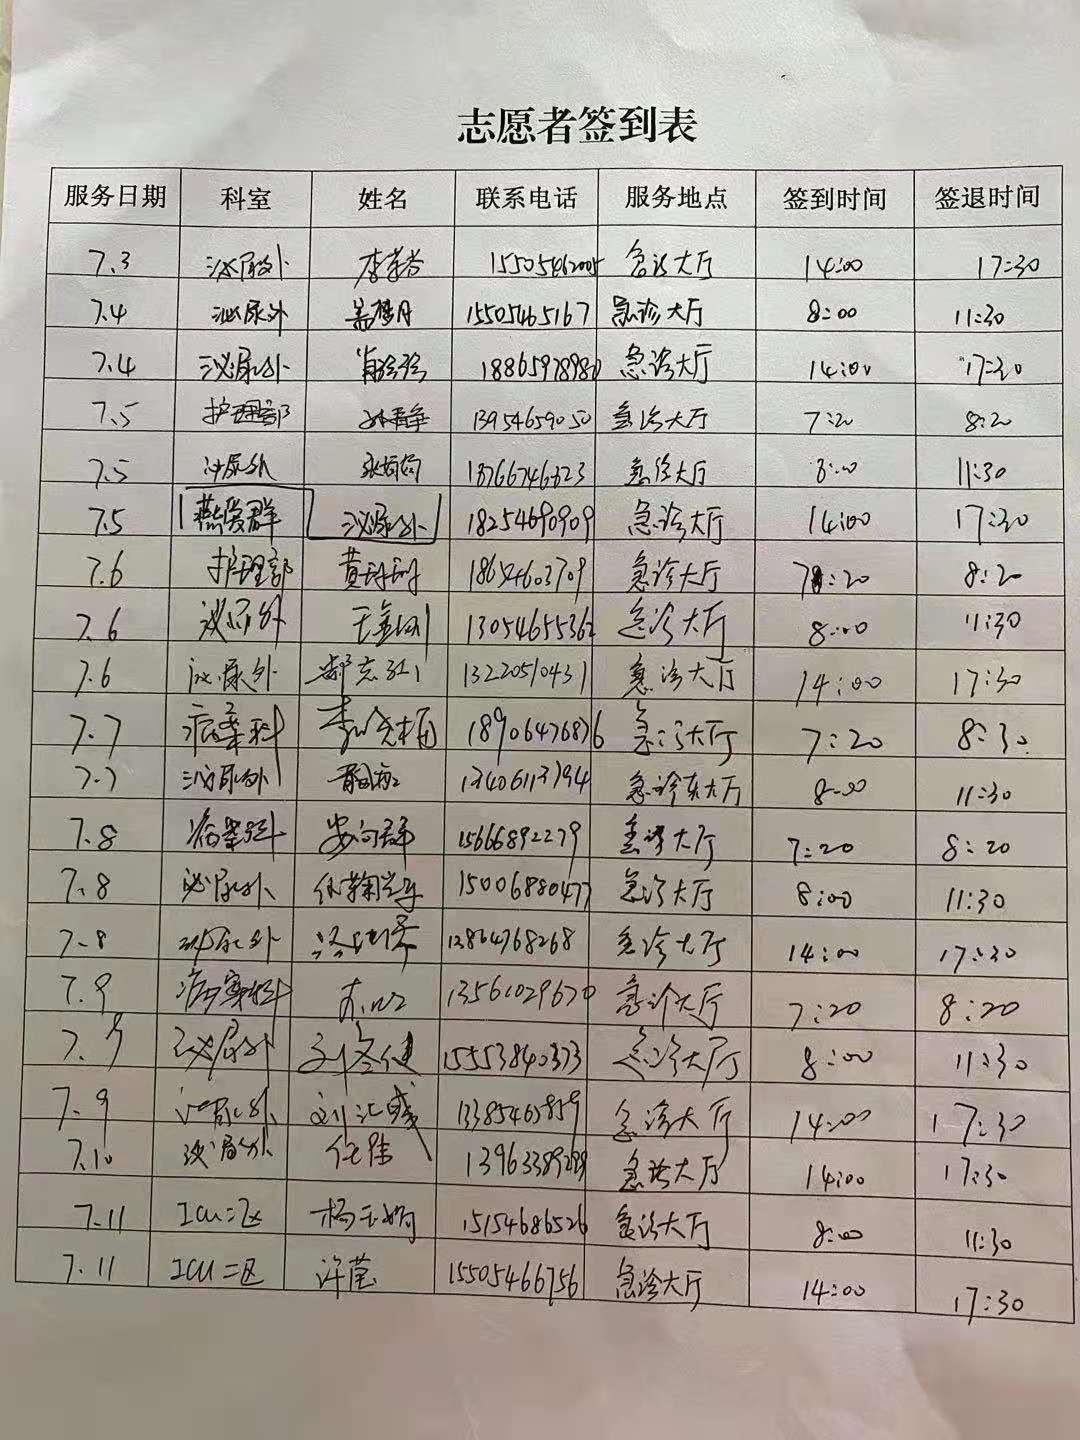 志愿者签到表
服务日期 科室 姓名 联系电话 服务地点 签到时间 签退时间
7.3 泌尿外 15505462005 急诊大厅 14:00 17:30
7.4 泌尿外 盖梦月 15505465167 急诊大厅 8:00 11:30
7.4 泌尿外 肖珍珍 急诊大厅 14:00 17:30
7.5 护理部 孙静 13954659050 急诊大厅 7:20 8:20
7.5 泌尿外 18766746323 急诊大厅 8:00 11:30
7.5 燕爱群 泌尿外 18254690909 急诊大厅 14:00 17:30
7.6 护理部 18654603709 急诊大厅 7:20 8:20
7.6 泌尿外 王金刚 13054655362 急诊大厅 8:00 11:30
7.6 泌尿外 郝志红 13220510431 急诊大厅 14:00 17:30
7.7 病案科 18906476876 急诊大厅 7:20 8:30
7.7 泌尿外 13406113794 急诊大厅 8:00 11:30
7.8 病案科 安向群 15666892279 急诊大厅 7:20 8:20
7.8 泌尿外 15006880477 急诊大厅 8:00 11:30
7.8 泌尿外 13864768268 急诊大厅 14:00 17:30
7.9 病案科 13561029670 急诊大厅 7:20 8:20
7.9 泌尿外 15553840373 急诊大厅 8:00 11:30
7.9 泌尿外 刘汇 13385463859 急诊大厅 14:00 17:30
7.10 泌尿外 任陆 急诊大厅 14:00 17:30
7.11 ICU二区 杨玉娇 15154686526 急诊大厅 8:00 11:30
7.11 ICU二区 许莹 15505466756 急诊大厅 14:00 17:30